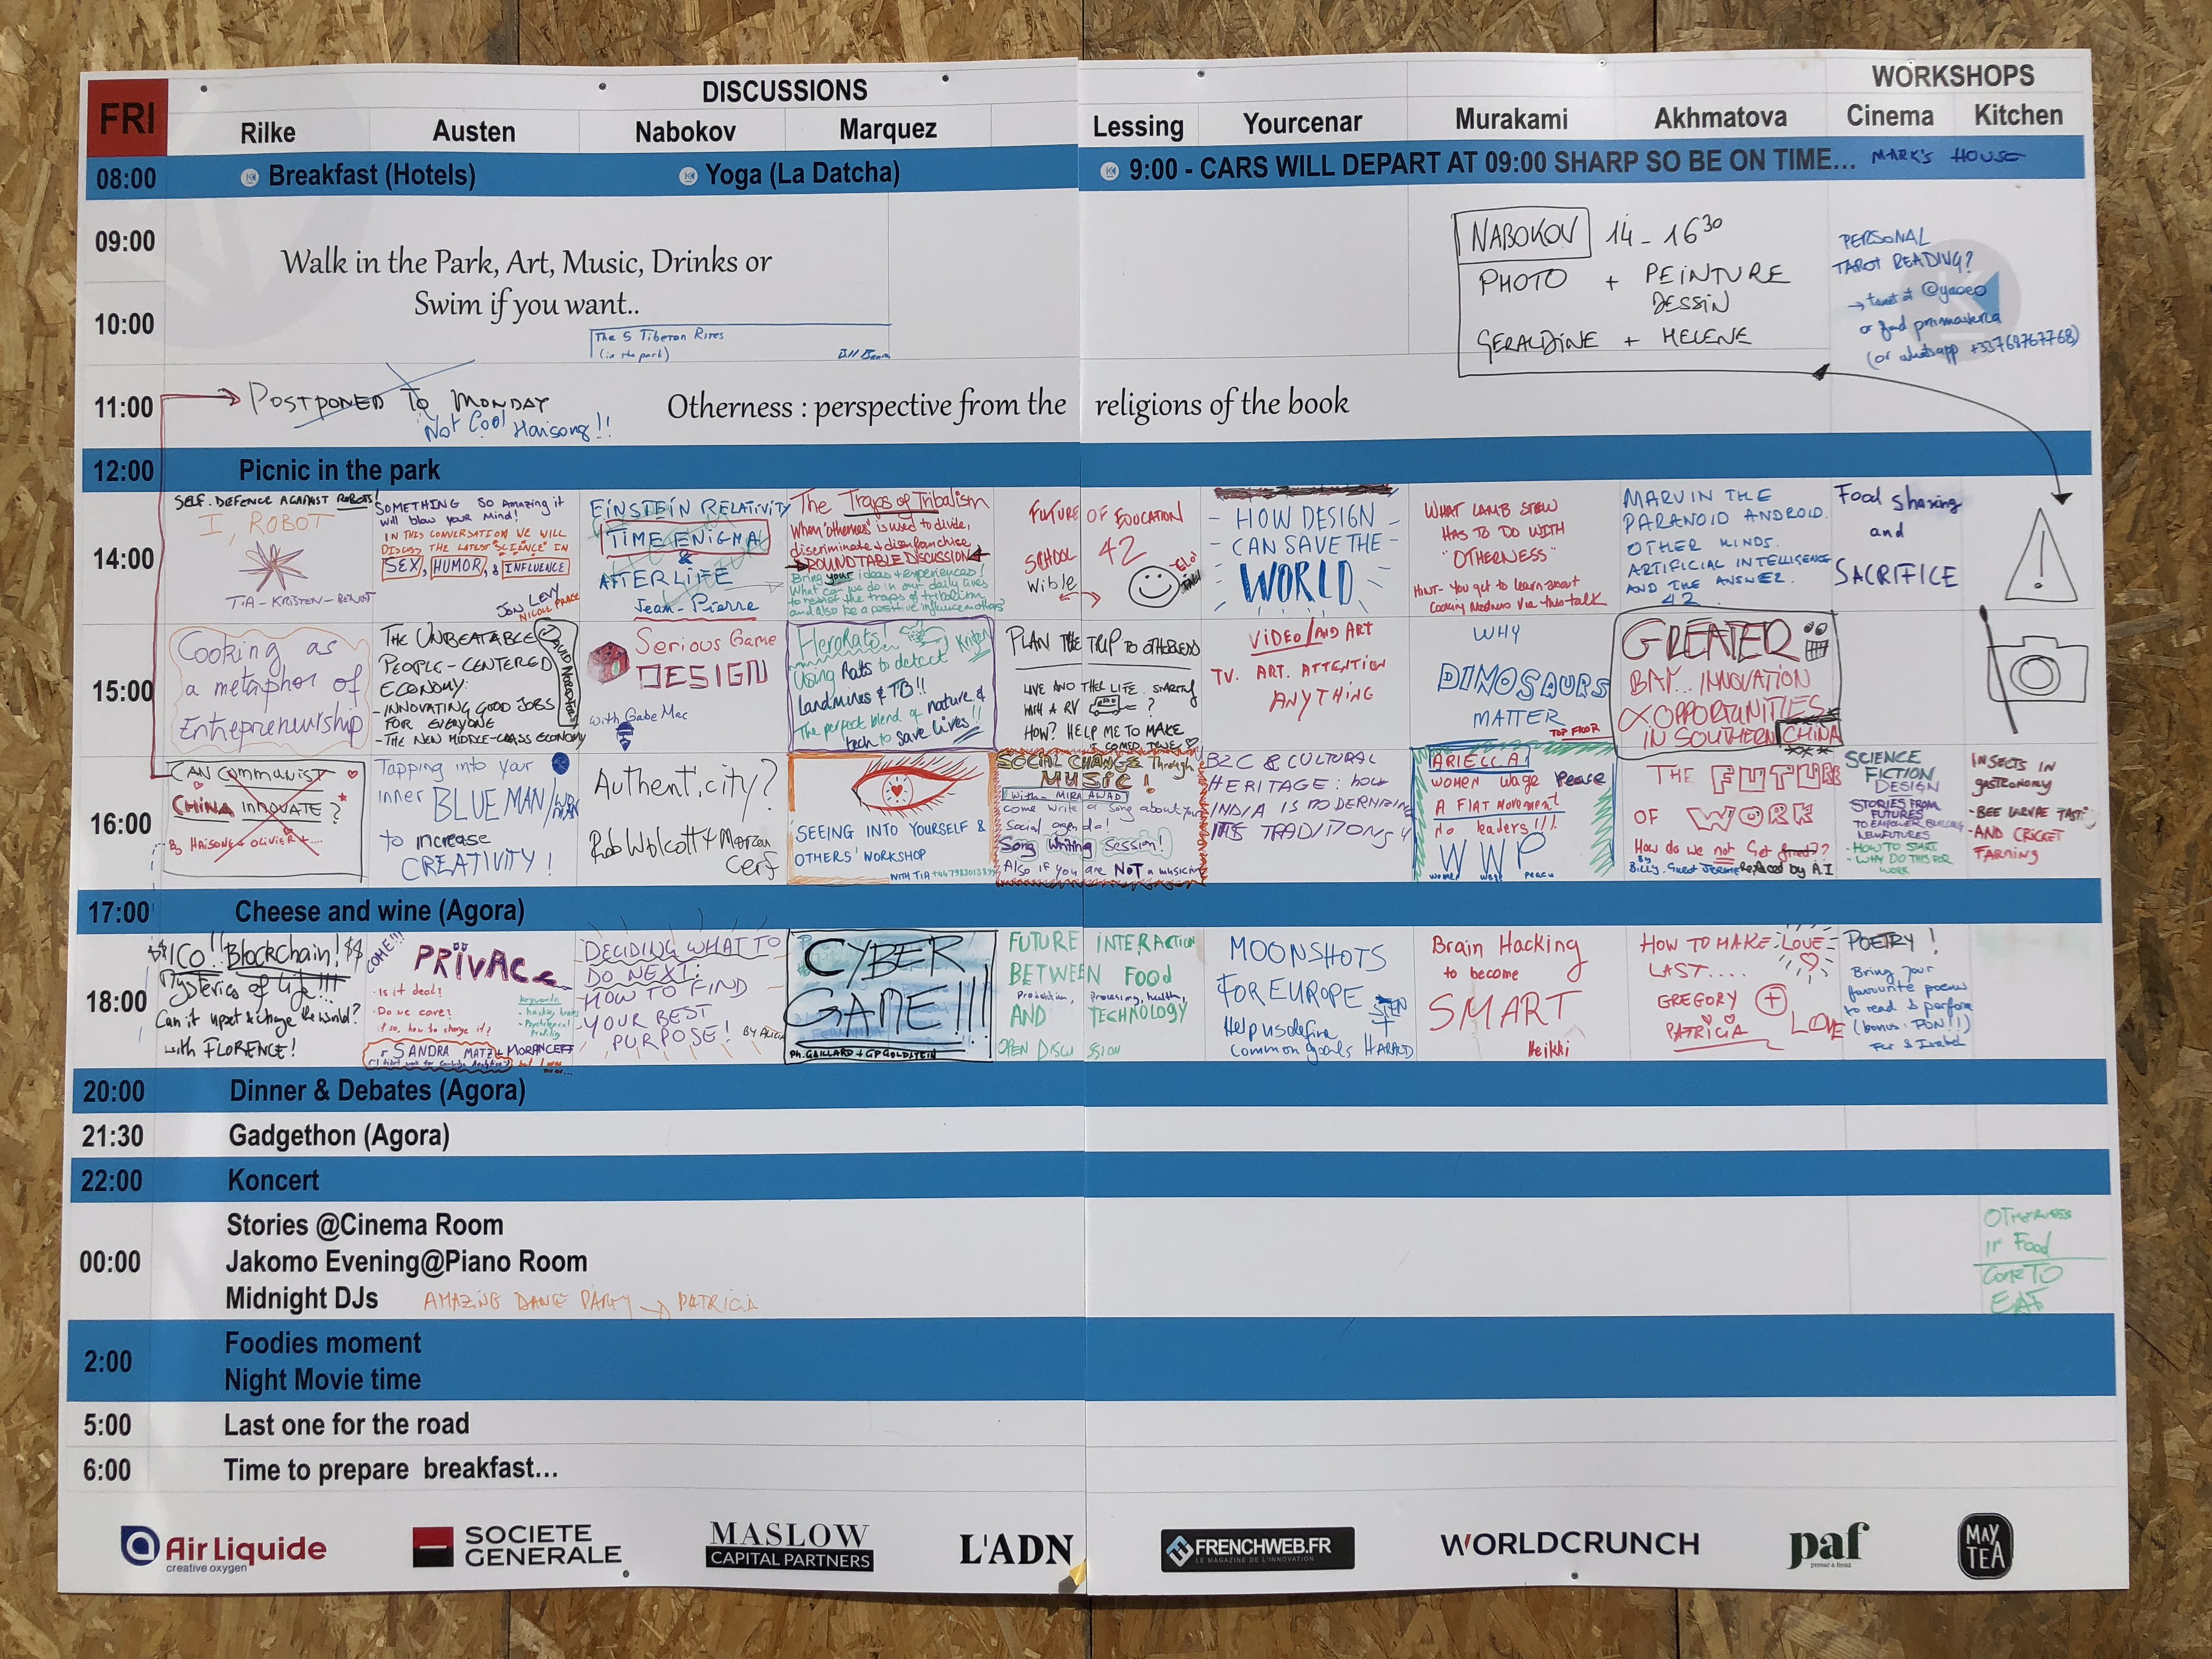 FRI
DISCUSSIONS
WORKSHOPS
Rilke
Austen
Nabokov
Marquez
Lessing
Yourcenar
Murakami
Akhmatova
Cinema
Kitchen
08:00
Breakfast (Hotels)
Yoga (La Datcha)
9:00 - CARS WILL DEPART AT 09:00 SHARP SO BE ON TIME...
MARK'S HOUSE
09:00
Walk in the Park, Art, Music, Drinks or
Swim if you want..
10:00
The 5 Tibetan Rites
(in the park)
NABOKOV 14 - 16 30
PHOTO + PEINTURE
DESSIN
GERALDINE + HELENE
PERSONAL
TAROT READING?
→ tweet at @yaoeo
or find primavera
(or whatsapp +33768767768)
11:00
POSTPONED TO MONDAY
Not Cool Haisong!!
Otherness : perspective from the religions of the book
12:00
Picnic in the park
14:00
SELF-DEFENCE AGAINST ROBOTS!
I, ROBOT
TIA-KRISTEN-BENOIT
SOMETHING So Amazing it
will blow your Mind!
IN THIS CONVERSATION WE WILL
DISCUSS THE LATEST "SCIENCE" IN
SEX, HUMOR, & INFLUENCE
JON LEVY
EINSTEIN RELATIVITY
TIME ENIGMA
&
AFTERLIFE
Jean-Pierre
The Traps of Tribalism
When 'otherness' is used to divide,
discriminate & disenfranchise
ROUNDTABLE DISCUSSION
Bring your ideas & experiences!
What can we do in our daily lives
to resist the traps of tribalism
and also be a positive influence on others
FUTURE OF EDUCATION
SCHOOL 42
HOW DESIGN
CAN SAVE THE
WORLD
WHAT LAMB STEW
HAS TO DO WITH
"OTHERNESS"
HINT- You get to learn about
Cooking Madness Via this talk
MARVIN THE
PARANOID ANDROID.
OTHER MINDS.
ARTIFICIAL INTELLIGENCE
AND THE ANSWER.
42
Food sharing
and
SACRIFICE
15:00
Cooking as
a metaphor of
Entrepreneurship
THE UNBEATABLE
PEOPLE-CENTERED
ECONOMY:
- INNOVATING GOOD JOBS
FOR EVERYONE
- THE NEW MIDDLE-CLASS ECONOMY
DAVID NORDFORS
Serious Game
DESIGN
with Gabe Mac
HeroRats!
Kristen
Using Rats to detect
Landmines & TB!!
The perfect blend of nature &
tech to save lives!!
PLAN THE TRIP TO OTHERNESS
LIVE AND THE LIFE. STARTING
WITH A RV ?
HOW? HELP ME TO MAKE
VIDEO/AND ART
TV. ART. ATTENTION
ANYTHING
WHY
DINOSAURS
MATTER
TOP FLOOR
GREATER
BAY... INNOVATION
OPPORTUNITIES
IN SOUTHERN CHINA
16:00
CAN Communist
CHINA INNOVATE?
By HAISONG + OLIVIER
Tapping into your
inner BLUE MAN
to increase
CREATIVITY!
Authenticity?
Rob Wolcott & Moran
Cerf
SEEING INTO YOURSELF &
OTHERS' WORKSHOP
WITH TIA
SOCIAL CHANGE Through
MUSIC!
With - MIRA AWAD
come write a song about your
Social agenda!
Song Writing Session!
Also if you are NOT a musician
B2C & CULTURAL
HERITAGE: how
INDIA IS MODERNIZING
ITS TRADITIONS
ARIELLA!
women wage Peace
A FIAT movement
No leaders!!!
WWP
women wage peace
THE FUTURE
OF WORK
How do we not Get fired??
Replaced by A.I
SCIENCE
FICTION
DESIGN
STORIES FROM
FUTURES
TO EMPOWER BUILDING
NEW FUTURES
- HOW TO START
- WHY DO THIS FOR
WORK
INSECTS IN
gastronomy
- BEE LARVAE TASTING
- AND CRICKET
FARMING
17:00
Cheese and wine (Agora)
18:00
$$ICO!! BlockChain! $$
Mysteries of life!!!!
Can it upset & change the world?
with FLORENCE!
COME!!!
PRIVACY
- Is it dead?
- Do we care?
If so, how to change it?
SANDRA MATZ + MORAN CERF
DECIDING WHAT TO
DO NEXT:
HOW TO FIND
YOUR BEST
PURPOSE!
BY ALICIA
CYBER
GAME!!!
PH. GAILLARD + GP GOLDSTEIN
FUTURE INTERACTION
BETWEEN FOOD
Production, processing, health,
AND TECHNOLOGY
OPEN DISCUSSION
MOONSHOTS
FOR EUROPE
Help us define
common goals
STEN
+
HARALD
Brain Hacking
to become
SMART
Heikki
HOW TO MAKE LOVE
LAST....
GREGORY +
PATRICIA
LOVE
POETRY!
Bring your
favourite poems
to read & perform
(bonus: FUN!!)
20:00
Dinner & Debates (Agora)
21:30
Gadgethon (Agora)
22:00
Koncert
00:00
Stories @Cinema Room
Jakomo Evening@Piano Room
Midnight DJs
AMAZING DANCE PARTY → PATRICIA
OTHERNESS
in Food
COME TO
EAT
2:00
Foodies moment
Night Movie time
5:00
Last one for the road
6:00
Time to prepare breakfast...
Air Liquide
creative oxygen
SOCIETE
GENERALE
MASLOW
CAPITAL PARTNERS
L'ADN
FRENCHWEB.FR
LE MAGAZINE DE L'INNOVATION
WORLDCRUNCH
paf
pressé à froid
MAY
TEA